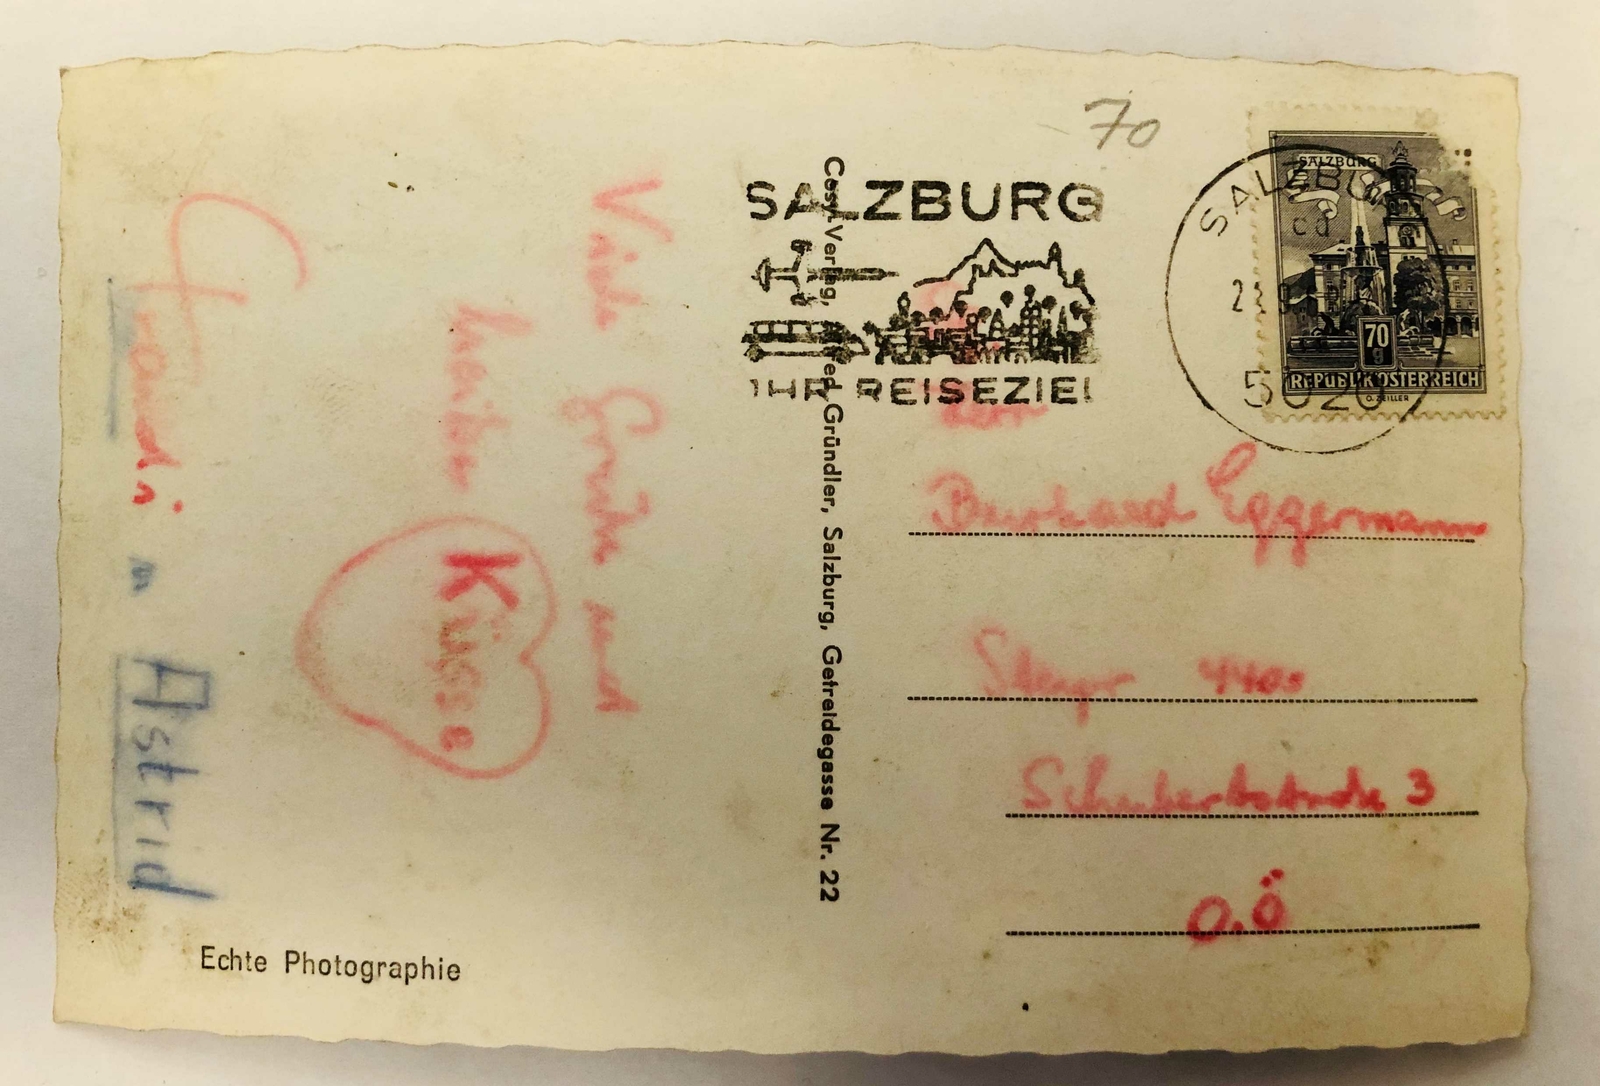 Viele Grüße und
Küsse
Astrid
Echte Photographie
Cosy-Verlag, Alfred Gründler, Salzburg, Getreidegasse Nr. 22
SALZBURG
IHR REISEZIEL
70
SALZBURG
5020
SALZBURG
70
g
REPUBLIK ÖSTERREICH
O. ZEILLER
Burkhard Eggermann
Steyr 4400
Schubertstraße 3
O.Ö